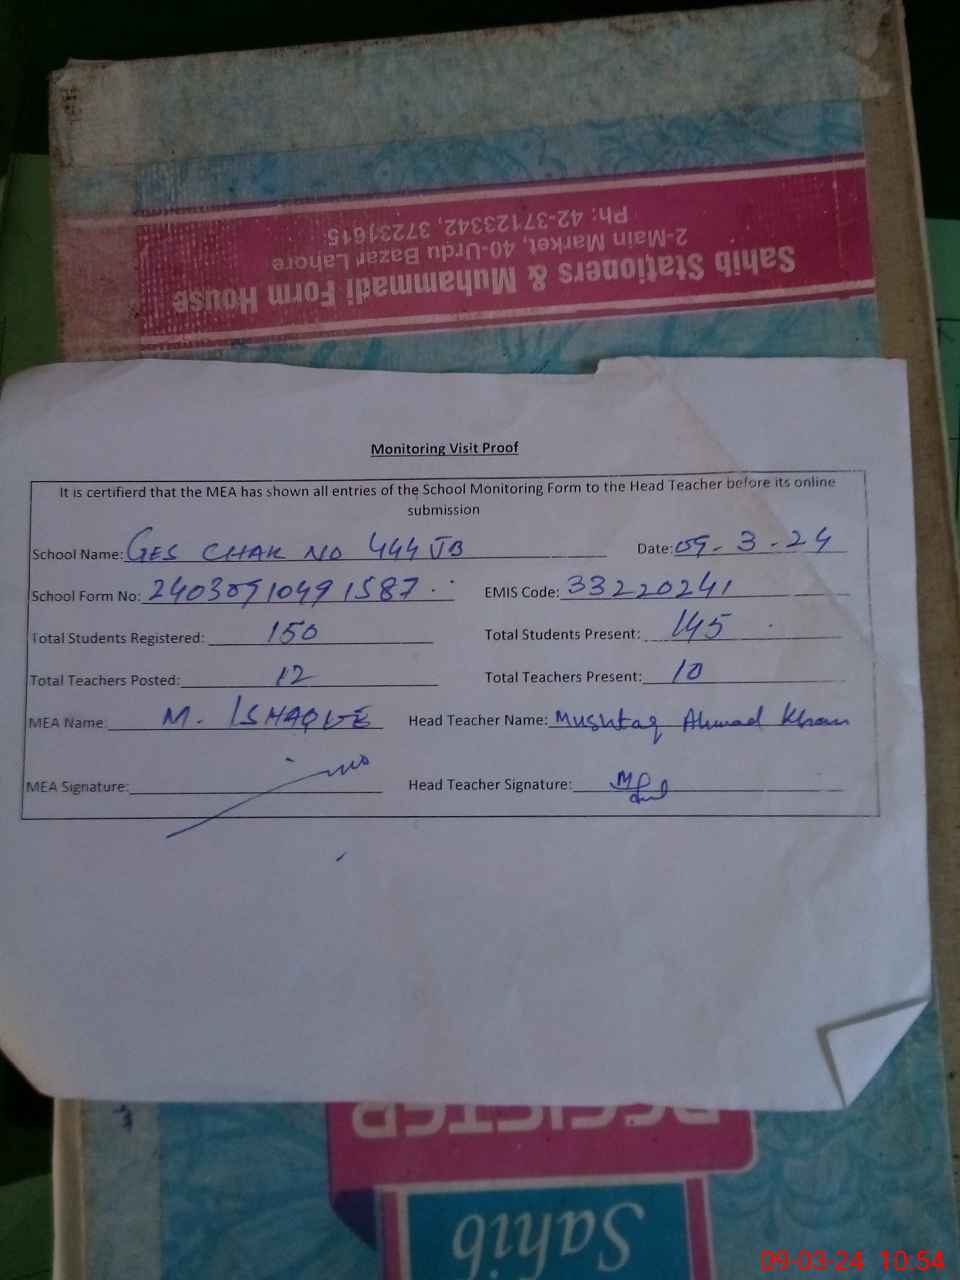 Sahib Stationers & Muhammadi Form House
2-Main Market, 40-Urdu Bazar Lahore
Ph: 42-37123342, 37231615
Monitoring Visit Proof
It is certifierd that the MEA has shown all entries of the School Monitoring Form to the Head Teacher before its online
submission
School Name: GES CHAK NO 444 JB Date: 09-3-24
School Form No: 2403091049 1587 EMIS Code: 33220241
Total Students Registered: 150 Total Students Present: 145
Total Teachers Posted: 12 Total Teachers Present: 10
MEA Name: M. ISHAQUE Head Teacher Name: Mushtaq Ahmad Khan
MEA Signature: Head Teacher Signature:
REGISTER
Sahib
09-03-24 10:54